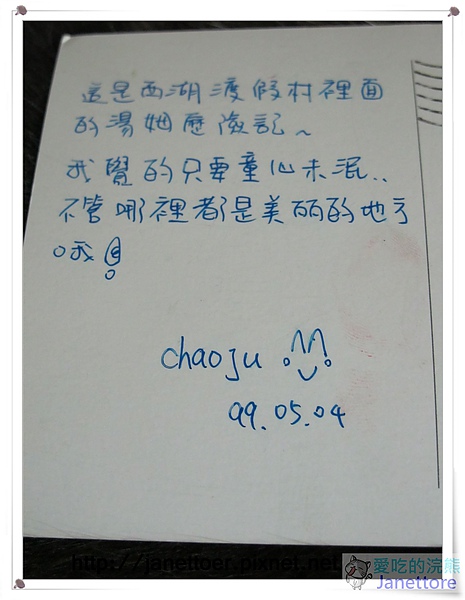 這是西湖渡假村裡面
的湯姆歷險記~
我覺的只要童心未泯..
不管哪裡都是美丽的地方
哦!
chaoju
99.05.04
http://janettoer.pixnet.net
愛吃的浣熊
Janettore